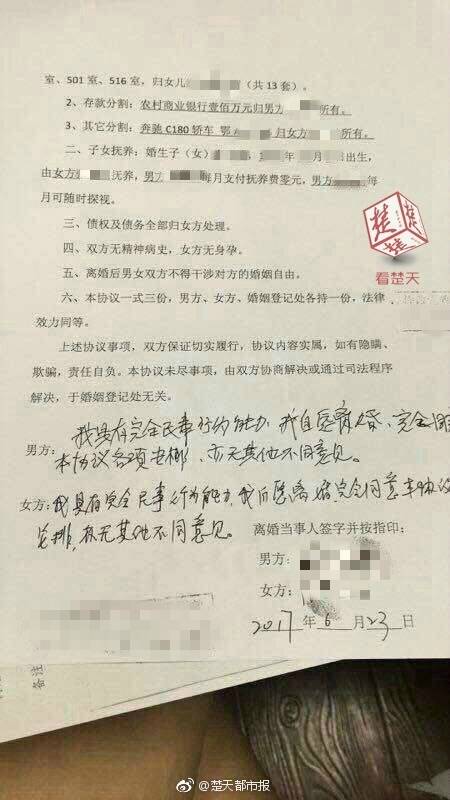 室、501 室、516 室，归女儿（共 13 套）。
2、存款分割：农村商业银行壹佰万元归男方所有。
3、其它分割：奔驰 C180 轿车 鄂归女方所有。
二、子女抚养：婚生子（女）年月出生，
由女方抚养，男方每月支付抚养费零元，男方每
月可随时探视。
三、债权及债务全部归女方处理。
四、双方无精神病史，女方无身孕。
五、离婚后男女双方不得干涉对方的婚姻自由。
六、本协议一式三份，男方、女方、婚姻登记处各持一份，法律
效力同等。
上述协议事项，双方保证切实履行，协议内容实属，如有隐瞒、
欺骗，责任自负。本协议未尽事项，由双方协商解决或通过司法程序
解决，于婚姻登记处无关。
我具有完全民事行为能力，我自愿离婚，完全同
男方：本协议各项安排，亦无其他不同意见。
女方：我具有完全民事行为能力，我自愿离婚，完全同意本协议
安排，亦无其他不同意见。
离婚当事人签字并按指印：
男方：
女方：
2017年6月23日
楚楚楚
看楚天
备注
@楚天都市报